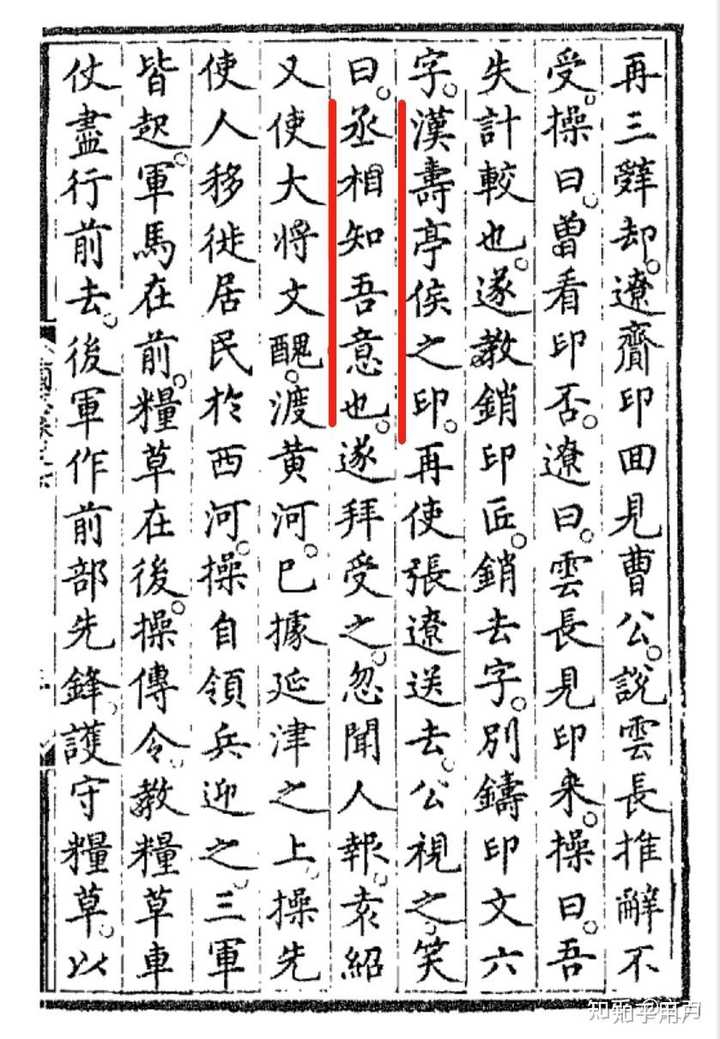 再三辭却。遼齎印回見曹公。説雲長推辭不
受。操曰。曽看印否。遼曰。雲長見印来。操曰。吾
失計較也。遂教銷印匠。銷去字。別鑄印文六
字。漢壽亭侯之印。再使張遼送去。公視之。笑
曰。丞相知吾意也。遂拜受之。忽聞人報。袁紹
又使大将文醜。渡黄河。已據延津之上。操先
使人移徙居民於西河。操自領兵迎之。三軍
皆起。軍馬在前。糧草在後。操傳令。教糧草車
仗盡行前去。後軍作前部先鋒。護守糧草。以
知乎用户